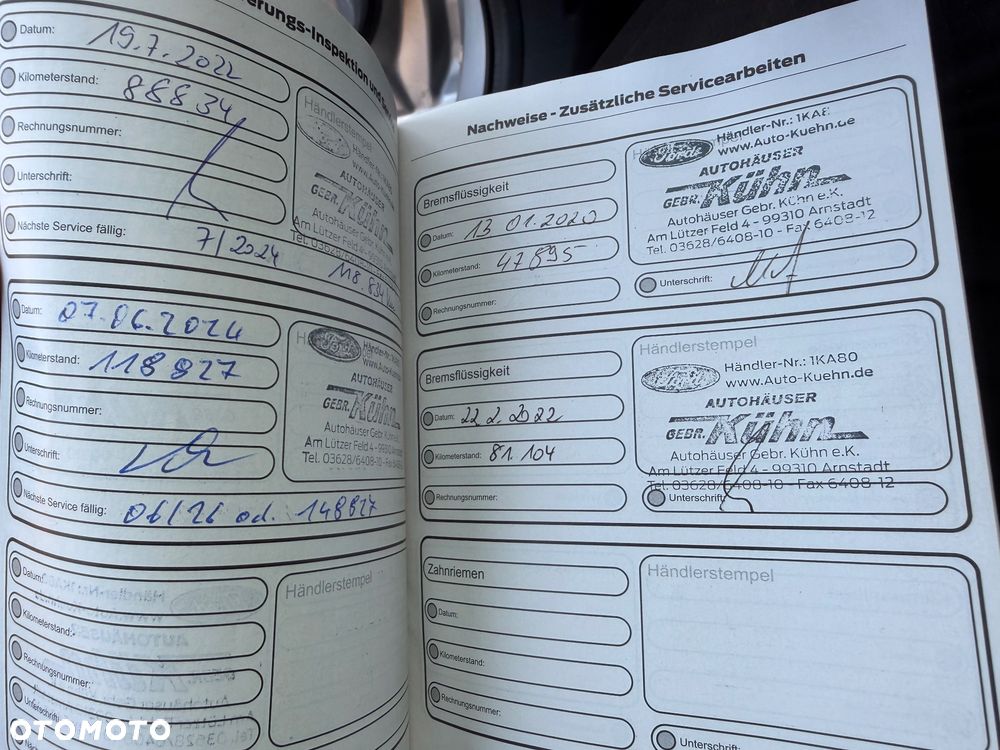 erungs-Inspektion und
Datum: 19.7.2022
Kilometerstand: 88834
Rechnungsnummer:
Unterschrift:
Nächste Service fällig: 7/2024 118 834
Händlerstempel
Händler-Nr.:
www.Auto
AUTOHÄUSER
GEBR. Kühn
Autohäuser Gebr.
Am Lützer Feld 4 - 99310
Tel. 03628/6408-10
Datum: 07.06.2024
Kilometerstand: 118827
Rechnungsnummer:
Unterschrift:
Nächste Service fällig: 06/26 od. 148827
Ford
Händler-Nr.:
www.Auto-K
AUTOHÄUSER
GEBR. Kühn
Autohäuser Gebr. Kühn
Am Lützer Feld 4 - 99310
Tel. 03628/6408-10
Datum:
Kilometerstand:
Rechnungsnummer:
Unterschrift:
Händlerstempel
Nachweise - Zusätzliche Servicearbeiten
Bremsflüssigkeit
Datum: 13 01.2020
Kilometerstand: 47895
Rechnungsnummer:
Ford
Händler-Nr.: 1KA8
www.Auto-Kuehn.de
AUTOHÄUSER
GEBR. Kühn
Autohäuser Gebr. Kühn e.K.
Am Lützer Feld 4 - 99310 Arnstadt
Tel. 03628/6408-10 - Fax 6408-12
Unterschrift:
Bremsflüssigkeit
Datum: 22.2.2022
Kilometerstand: 81.104
Rechnungsnummer:
Händlerstempel
Händler-Nr.: 1KA80
www.Auto-Kuehn.de
AUTOHÄUSER
GEBR. Kühn
Autohäuser Gebr. Kühn e.K.
Am Lützer Feld 4 - 99310 Arnstadt
Tel. 03628/6408-10 - Fax 6408-12
Unterschrift:
Zahnriemen
Datum:
Kilometerstand:
Rechnungsnummer:
Händlerstempel
Unterschrift:
OTOMOTO